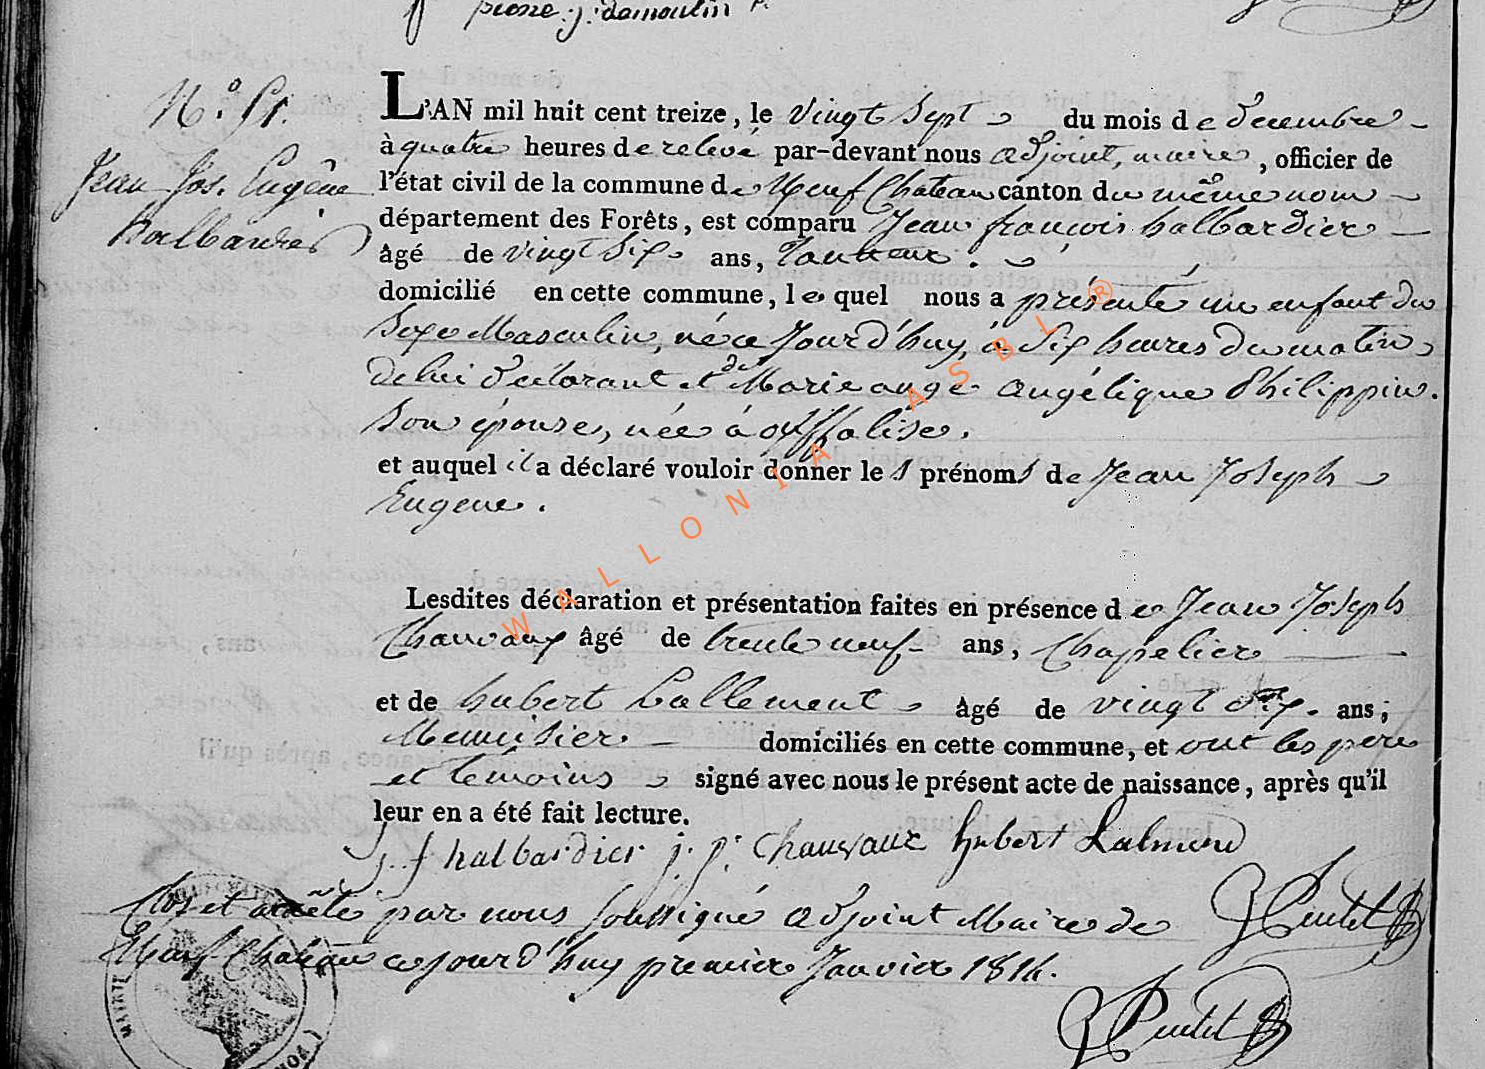 pierre. j. damoulin
N.° 51.
Jean Jos. Eugène
halbardier
L'AN mil huit cent treize, le vingt sept du mois de decembre
à quatre heures de relevé par-devant nous adjoint, maire, officier de
l'état civil de la commune de Neuf Chateau canton du même nom
département des Forêts, est comparu Jean françois halbardier
âgé de vingt Six ans, Tanneur.
domicilié en cette commune, le quel nous a présenté un enfant du
Sexe Masculin, né ce Jourd'huy, à Six heures du matin
de lui déclarant et de Marie ange angélique Philippin.
Son épouse, née à offalise.
et auquel il a déclaré vouloir donner les prénoms de Jean Joseph
Eugene.
Lesdites déclaration et présentation faites en présence de Jean Joseph
Chauvaux âgé de trente neuf ans, Chapelier
et de hubert Lallement âgé de vingt Six ans,
Menuisier domiciliés en cette commune, et ont les père
et temoins signé avec nous le présent acte de naissance, après qu'il
leur en a été fait lecture.
j. f halbardier j. j. Chauvaux hubert Lalmend
Clos et arrêté par nous soussigné adjoint Maire de
Neuf Chateau ce jourd'huy premier Janvier 1814.
MAIRIE
WALLONIA ASBL ®